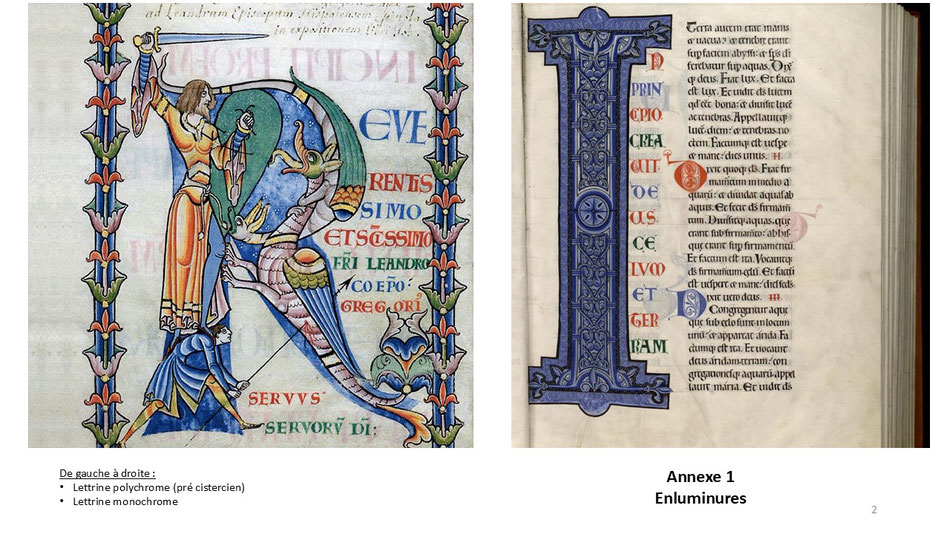 ad Leandrum Episcopum
in expositionem
EVE
RENTIS
SIMO
ET SC̄ISSIMO
FR̄I LEANDRO
COEP̄O:
GREGORI᷒
SERVVS
SERVORV̄ DĪ;
IN
PRIN
CIPIO
CREA
VIT
DE
US
CE
LVM
ET
TER
RAM
Terra autem erat inanis
& uacua: & tenebre erant
sup faciem abyssi: & sp̄s dī
ferebatur sup aquas. Dix̄
q; deus. Fiat lux. Et facta
est lux. Et uidit dīs lucem
qd̄ eēt bona: & diuisit lucē
ac tenebras. Appellauitq;
lucē diem: & tenebras no
ctem. Factumq; est uespe
& mane: dies unus. II.
Dixit quoq; dīs. Fiat fir
mam̄tum in medio a
quarū: & diuidat aquas ab
aquis. Et fecit dīs firmam̄
tum. Diuisitq; aquas, que
erant sub firmam̄to: ab his
que erant sup firmamentū.
Et factum est ita. Vocauitq;
dīs firmam̄tum celū. Et factū
est uespere & mane: dies secdīs.
Dixit uero deus. III
Congregentur aque
que sub celo sunt in locum
unū: & appareat arida. Fa
ctumq; est ita. Et uocauit
deus aridam terram: con
gregationesq; aquarū appel
lauit maria. Et uidit dīs
De gauche à droite :
• Lettrine polychrome (pré cistercien)
• Lettrine monochrome
Annexe 1
Enluminures
2